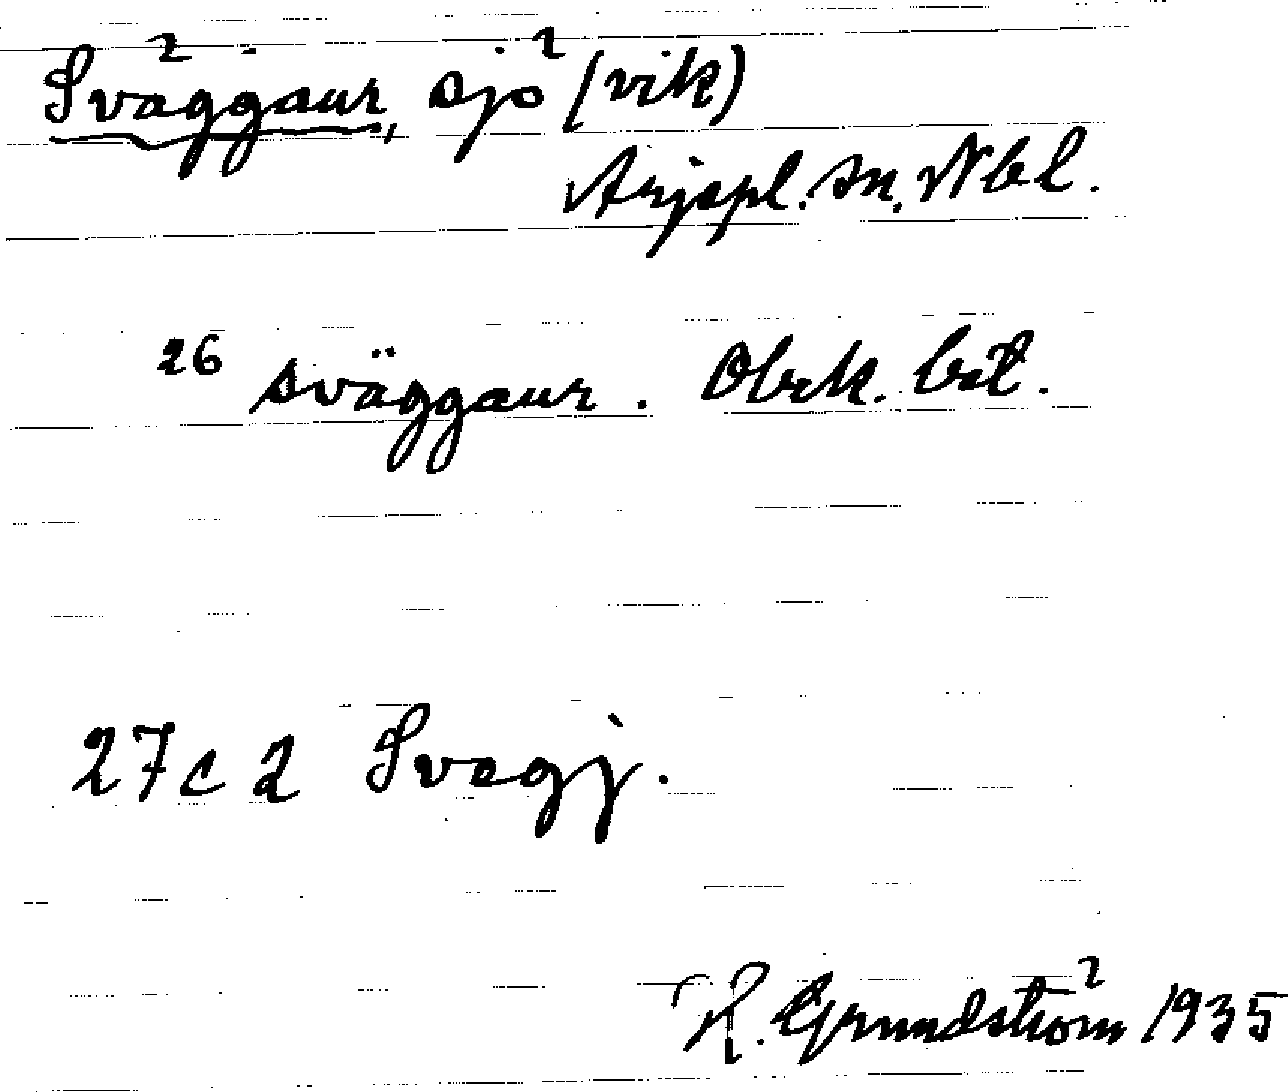 Sväggaur, sjö (vik)
Arjepl. sn. Nbl.
26 sväggaur. Obek. bet.
27 c 2 Svegj.
H. Grundström 1935